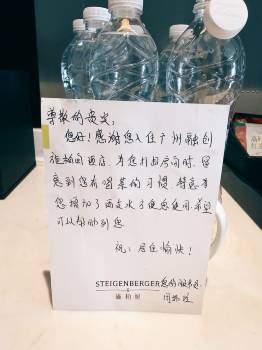 尊敬的贵宾,
您好!感谢您入住广州融创
施柏阁酒店,为您打扫房间时,留
意到您有喝茶的习惯,特意为
您增加了两支水方便您使用,希望
可以帮助到您
祝:居住愉快!
STEIGENBERGER
施柏阁
您的服务员: